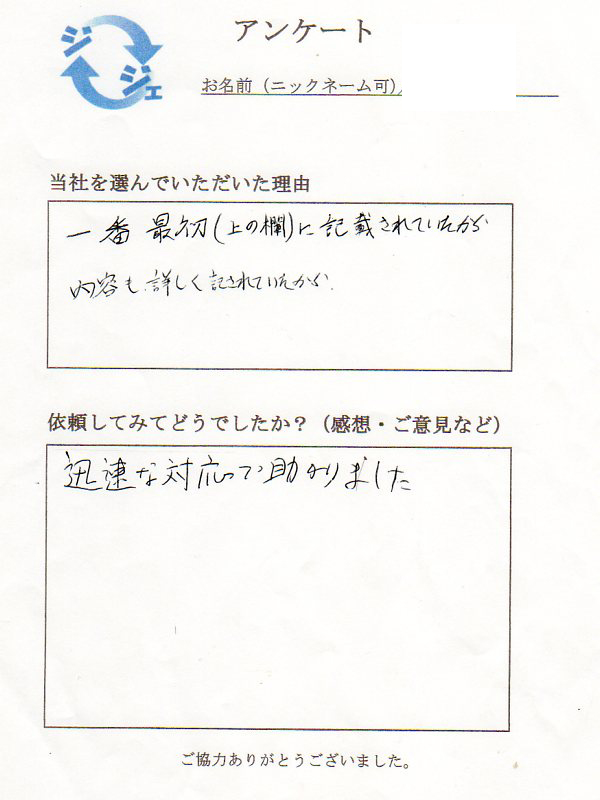 ジジェ
アンケート
お名前（ニックネーム可）
当社を選んでいただいた理由
一番最初(上の欄)に記載されていたから
内容も詳しく記されていたから.
依頼してみてどうでしたか？（感想・ご意見など）
迅速な対応で助かりました
ご協力ありがとうございました。